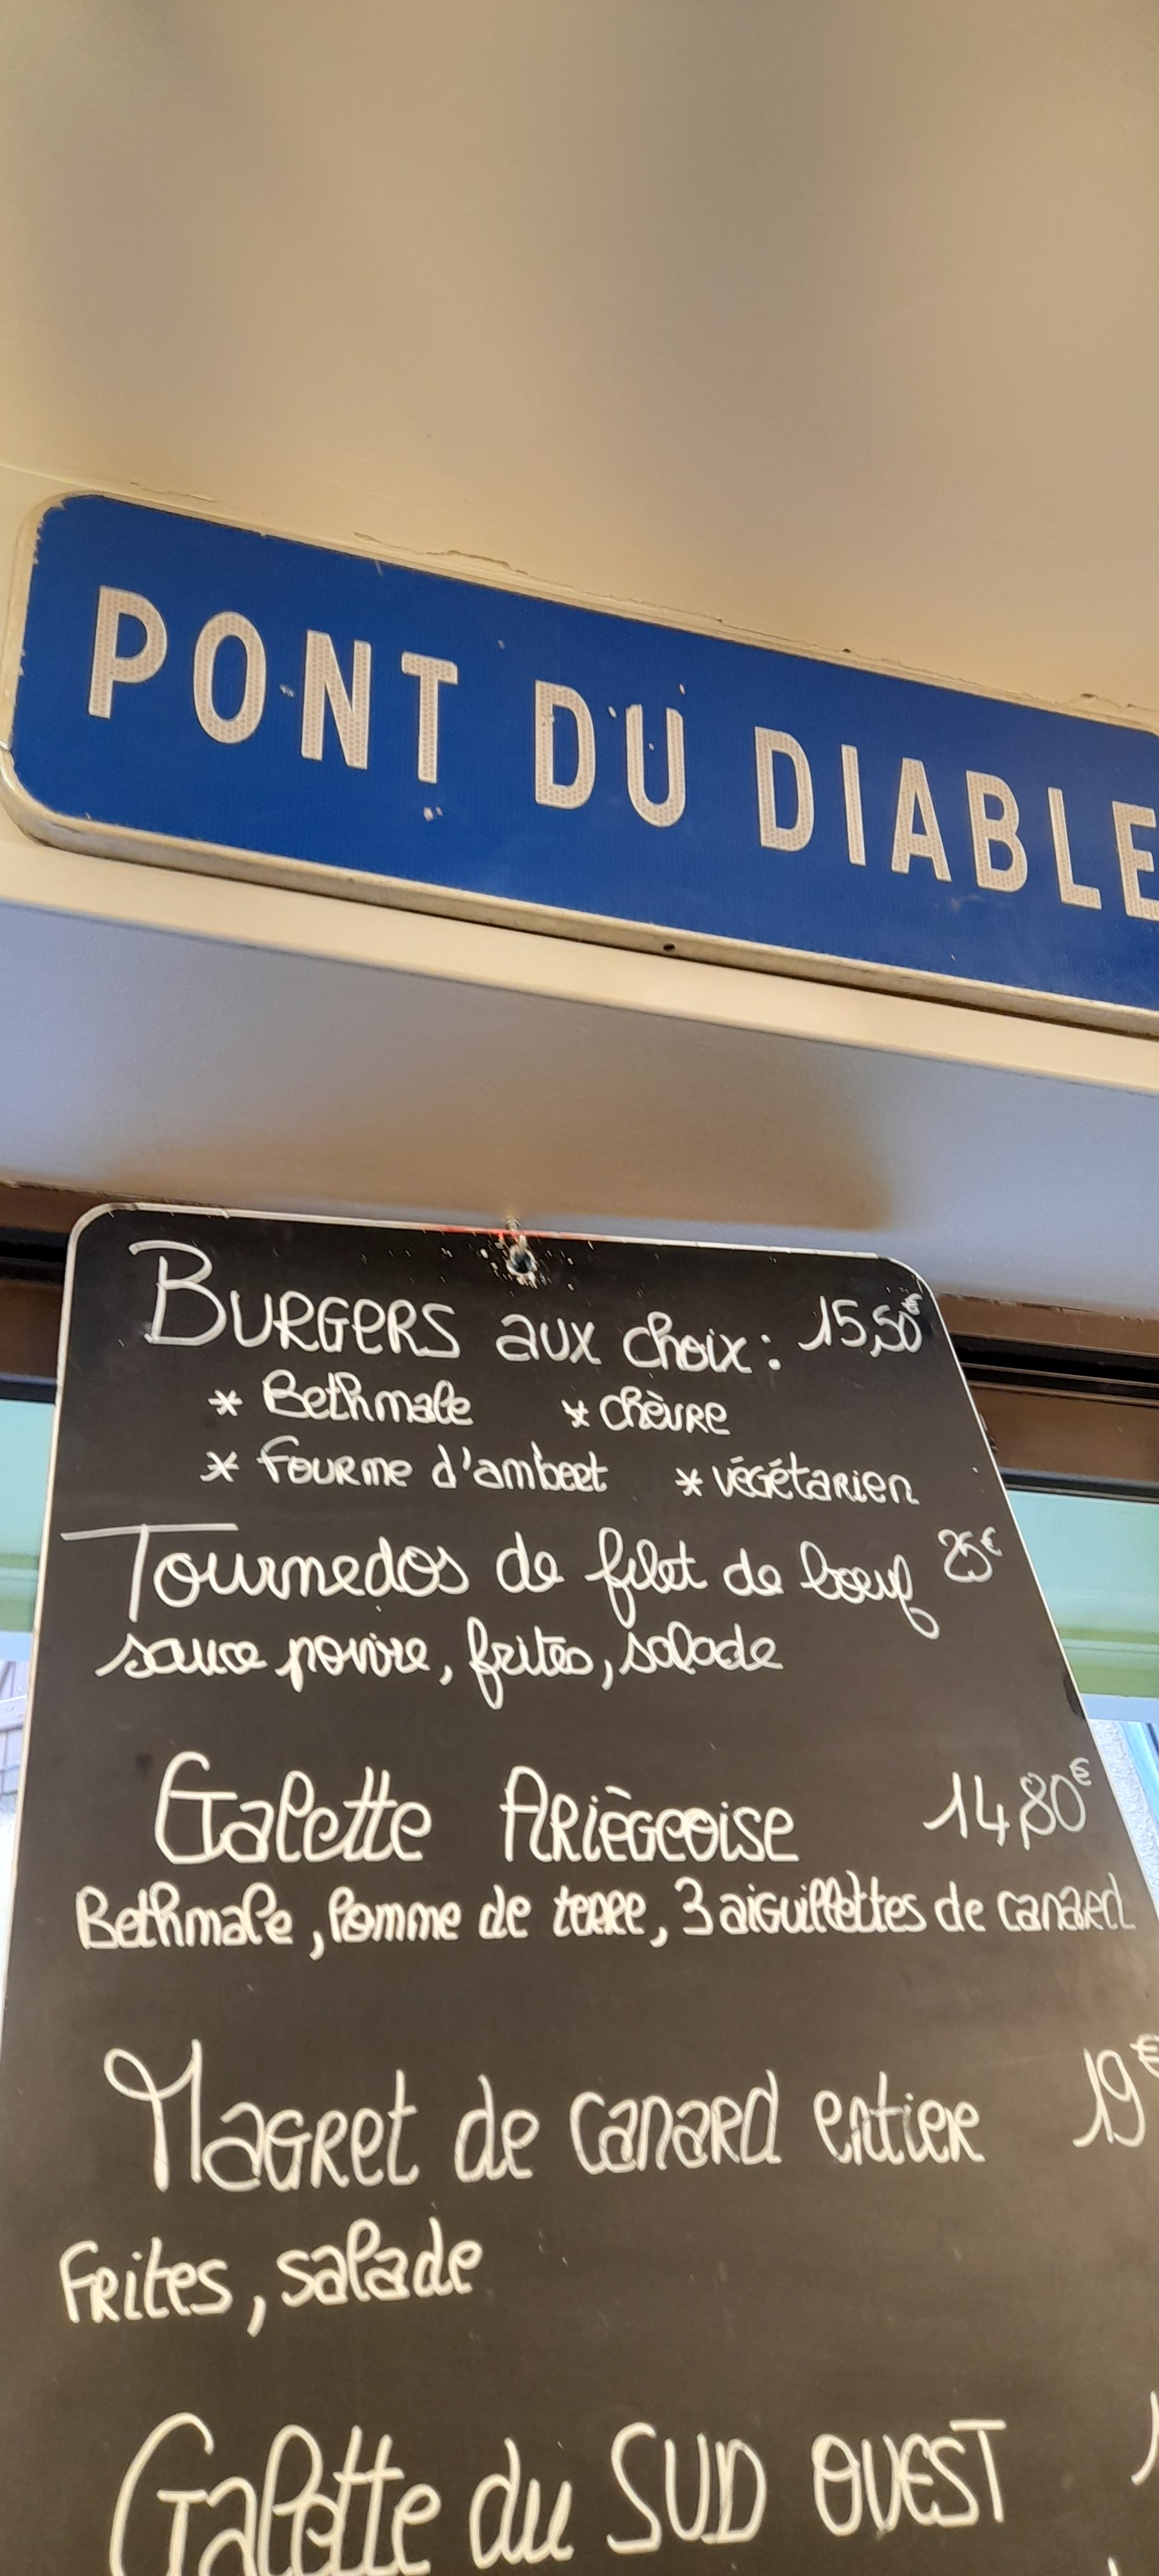 PONT DU DIABLE
BURGERS aux choix: 15,50€
* Bethmale * chèvre
* fourme d'ambert * végétarien
Tournedos de filet de boeuf 25€
sauce poivre, frites, salade
Galette Ariègeoise 14,80€
Bethmale, Pomme de terre, 3 aiguillettes de canard
Magret de canard entier 19€
Frites, salade
Galette du SUD OUEST